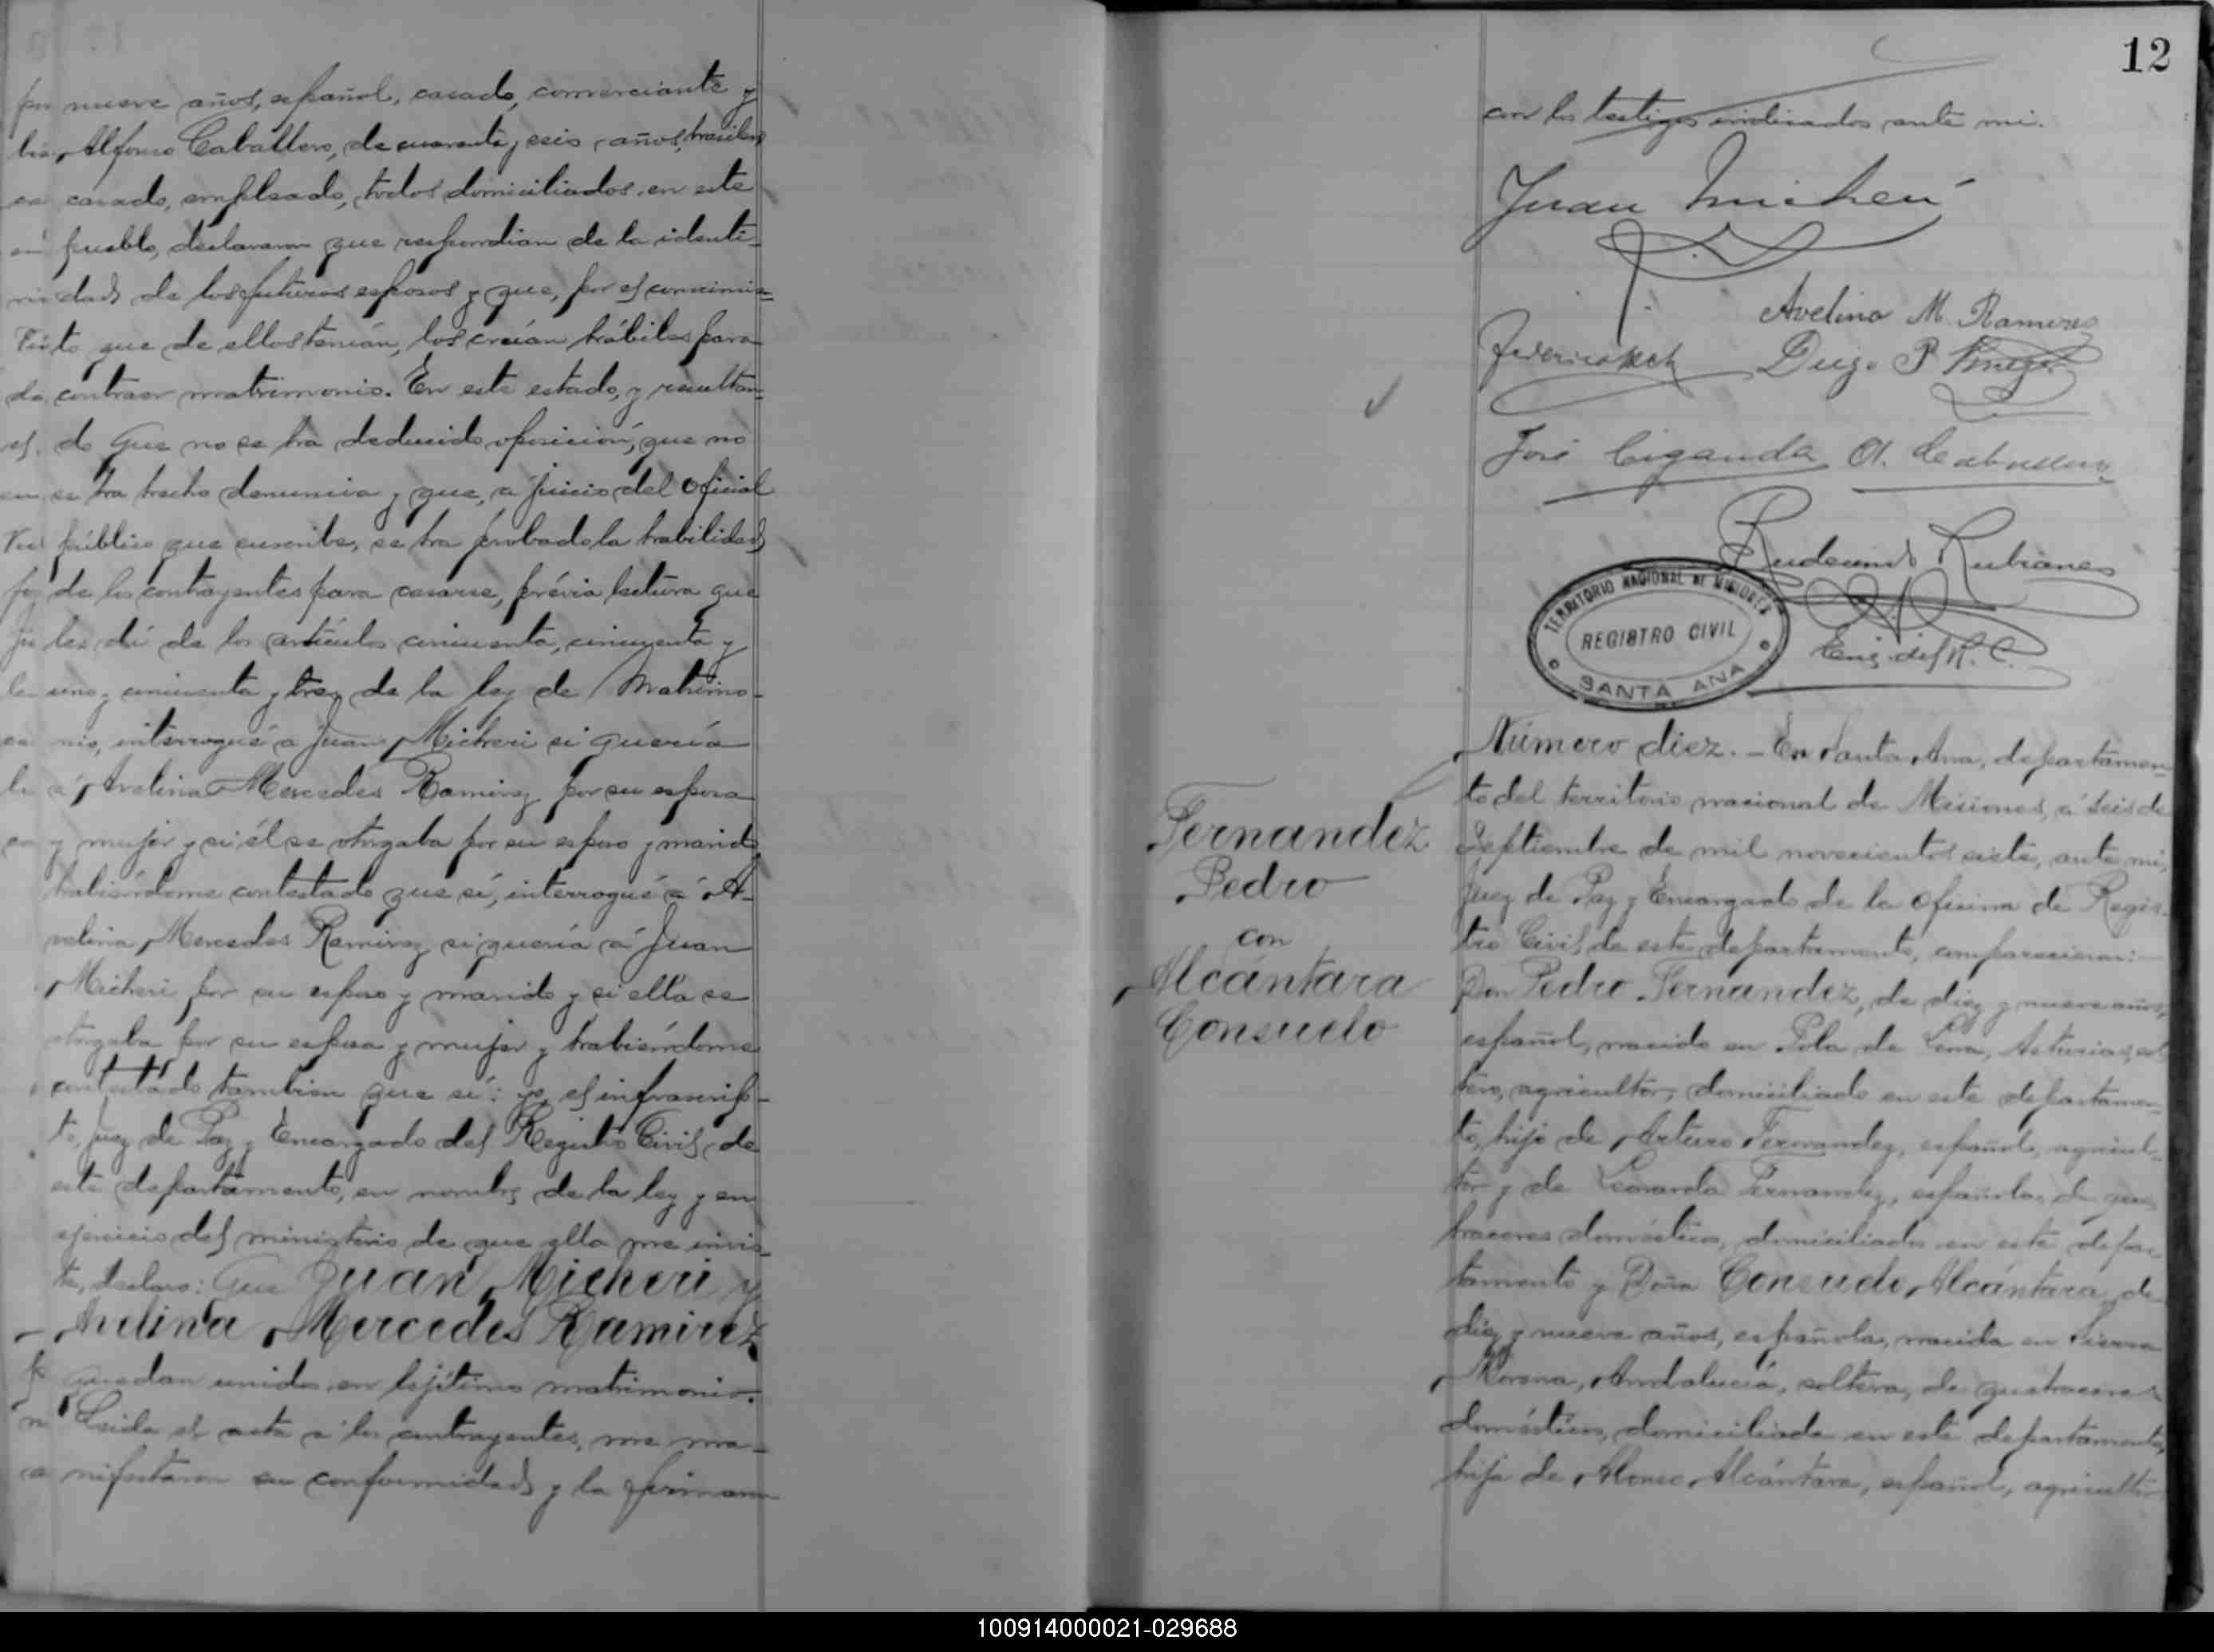 nueve años, español, casado, comerciante y
Alfonso Caballero, de cuarenta y seis años, brasilero
casado, empleado, todos domiciliados en este
pueblo, declararon que respondian de la identi-
dad de los futuros esposos y que, por el conocimie=
to que de ellos tenían, los creían hábiles para
contraer matrimonio. En este estado, y resultan=
do que no se ha deducido oposición, que no
se ha hecho denuncia y que, a juicio del Oficial
público que suscribe, se ha probado la habilidad
de los contrayentes para casarse, prévia lectura que
les dí de los artículos cincuenta, cincuenta y
uno y cincuenta y tres de la ley de Matrimo-
nio, interrogué a Juan Micheri si quería
a Avelina Mercedes Ramirez por su esposa
y mujer y si él se otorgaba por su esposo y marido
habiéndome contestado que sí, interrogué á A-
velina Mercedes Ramirez si quería á Juan
Micheri por su esposo y marido y si ella se
otorgaba por su esposa y mujer y habiéndome
contestado tambien que sí: yo, el infrascrip-
to, Juez de Paz y Encargado del Registro Civil de
este departamento, en nombre de la ley y en
ejercicio del ministerio de que ella me invis-
te, declaro: Que Juan Micheri y
Avelina Mercedes Ramirez
quedan unidos en lejítimo matrimonio.
Leida el acta a los contrayentes, me ma-
nifestaron su conformidad y la firmaron
12
con los testigos indicados ante mi.
Juan Micheri
Avelina M. Ramirez
Federico
José Ciganda A. Caballero
Rudecindo Rubianes
Enc. del R. C.
TERRITORIO NACIONAL DE MISIONES
REGISTRO CIVIL
SANTA ANA
Fernandez
Pedro
con
Alcántara
Consuelo
Número diez. - En Santa Ana, departamen-
to del territorio nacional de Misiones, á seis de
Septiembre de mil novecientos siete, ante mi,
Juez de Paz y Encargado de la oficina de Regis-
tro Civil de este departamento, comparecieron:
Don Pedro Fernandez, de diez y nueve años,
español, nacido en Pola de Lena, Asturias, sol
tero, agricultor, domiciliado en este departamen-
to, hijo de Arturo Fernandez, español, agricul-
tor y de Leonarda Fernandez, española, de que
haceres domésticos, domiciliados en este depar
tamento y Doña Consuelo Alcántara, de
diez y nueve años, española, nacida en Sierra
Morena, Andalucía, soltera, de quehaceres
domésticos, domiciliada en este departamento,
hija de Alonso Alcántara, español, agricultor
100914000021-029688